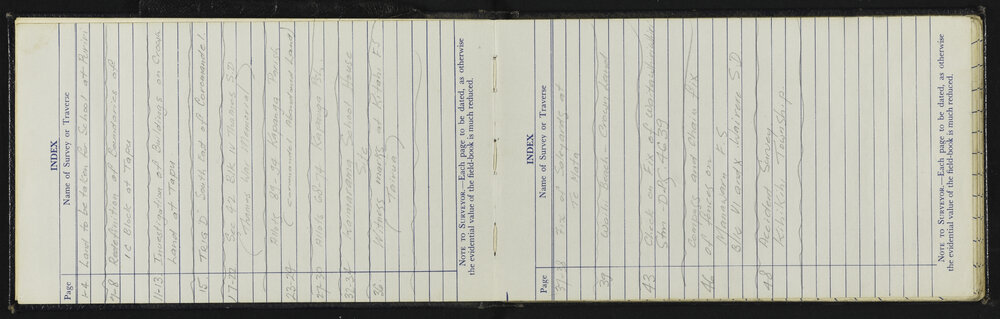 INDEX
Page Name of Survey or Traverse
1-4 Land to be taken for School at Puriri
7-8 Redefinition of Boundaries of
1c Block at Tapu
11-13 Investigation of Buildings on Crown
Land at Tapu
15 Trig D South End of Coromandel
17-22 Sec 42 Blk IV Thames SD
Thames
23-24 Allots 89- Kapanga Parish
(Abandoned Land)
27-30 Allots
32-34 School House
Site
36 Witness marks at Kotahi FS
(Tairua)
NOTE TO SURVEYOR.—Each page to be dated, as otherwise
the evidential value of the field-book is much reduced.
INDEX
Page Name of Survey or Traverse
Fix of Safeguards at
Te Mata
39 Waihi Beach - Crown Land
43 Check on Fix of
Stn - DPS 4639
46 Compass and Chain Fix
of fences on
Manawaru F S
Blks VI and X Wairere S D
48 Accident Survey
Kihikihi Township
NOTE TO SURVEYOR.—Each page to be dated, as otherwise
the evidential value of the field-book is much reduced.